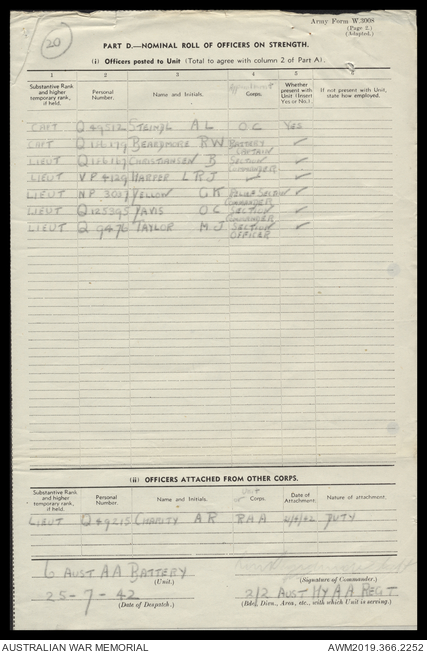 20
Army Form W.3008
(Page 2.)
(Adapted.)
PART D.—NOMINAL ROLL OF OFFICERS ON STRENGTH.
(i) Officers posted to Unit (Total to agree with column 2 of Part A).
1 2 3 4 5 6
Substantive Rank and higher temporary rank, if held. Personal Number. Name and Initials. Appointment Corps. Whether present with Unit (Insert Yes or No). If not present with Unit, state how employed.
CAPT Q 49512 STEINDL A L OC YES
CAPT BEARDMORE R W BATTERY CAPTAIN ✓
LIEUT CHRISTIANSEN B SECTION COMMANDER ✓
LIEUT VP 4129 HARPER L R J ✓
LIEUT NP 3017 YELLOW G K SECTION COMMANDER ✓
LIEUT Q125395 O C SECTION COMMANDER ✓
LIEUT Q 9476 TAYLOR M J SECTION OFFICER ✓
(ii) OFFICERS ATTACHED FROM OTHER CORPS.
Substantive Rank and higher temporary rank, if held. Personal Number. Name and Initials. Unit or Corps. Date of Attachment. Nature of attachment.
LIEUT Q 49215 CHARITY A R RAA DUTY
6 AUST AA BATTERY
(Unit.) (Signature of Commander.)
25-7-42 2/2 AUST HY AA REGT
(Date of Despatch.) (Bde, Divn., Area, etc., with which Unit is serving.)
AUSTRALIAN WAR MEMORIAL AWM2019.366.2252